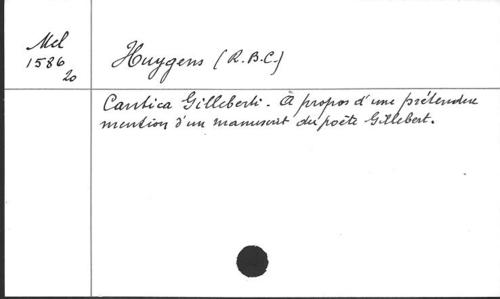 Mel
1586
20
Huygens (R.B.C.)
Cantica Gilleberti. À propos d'une prétendue
mention d'un manuscrit du poète Gillebert.